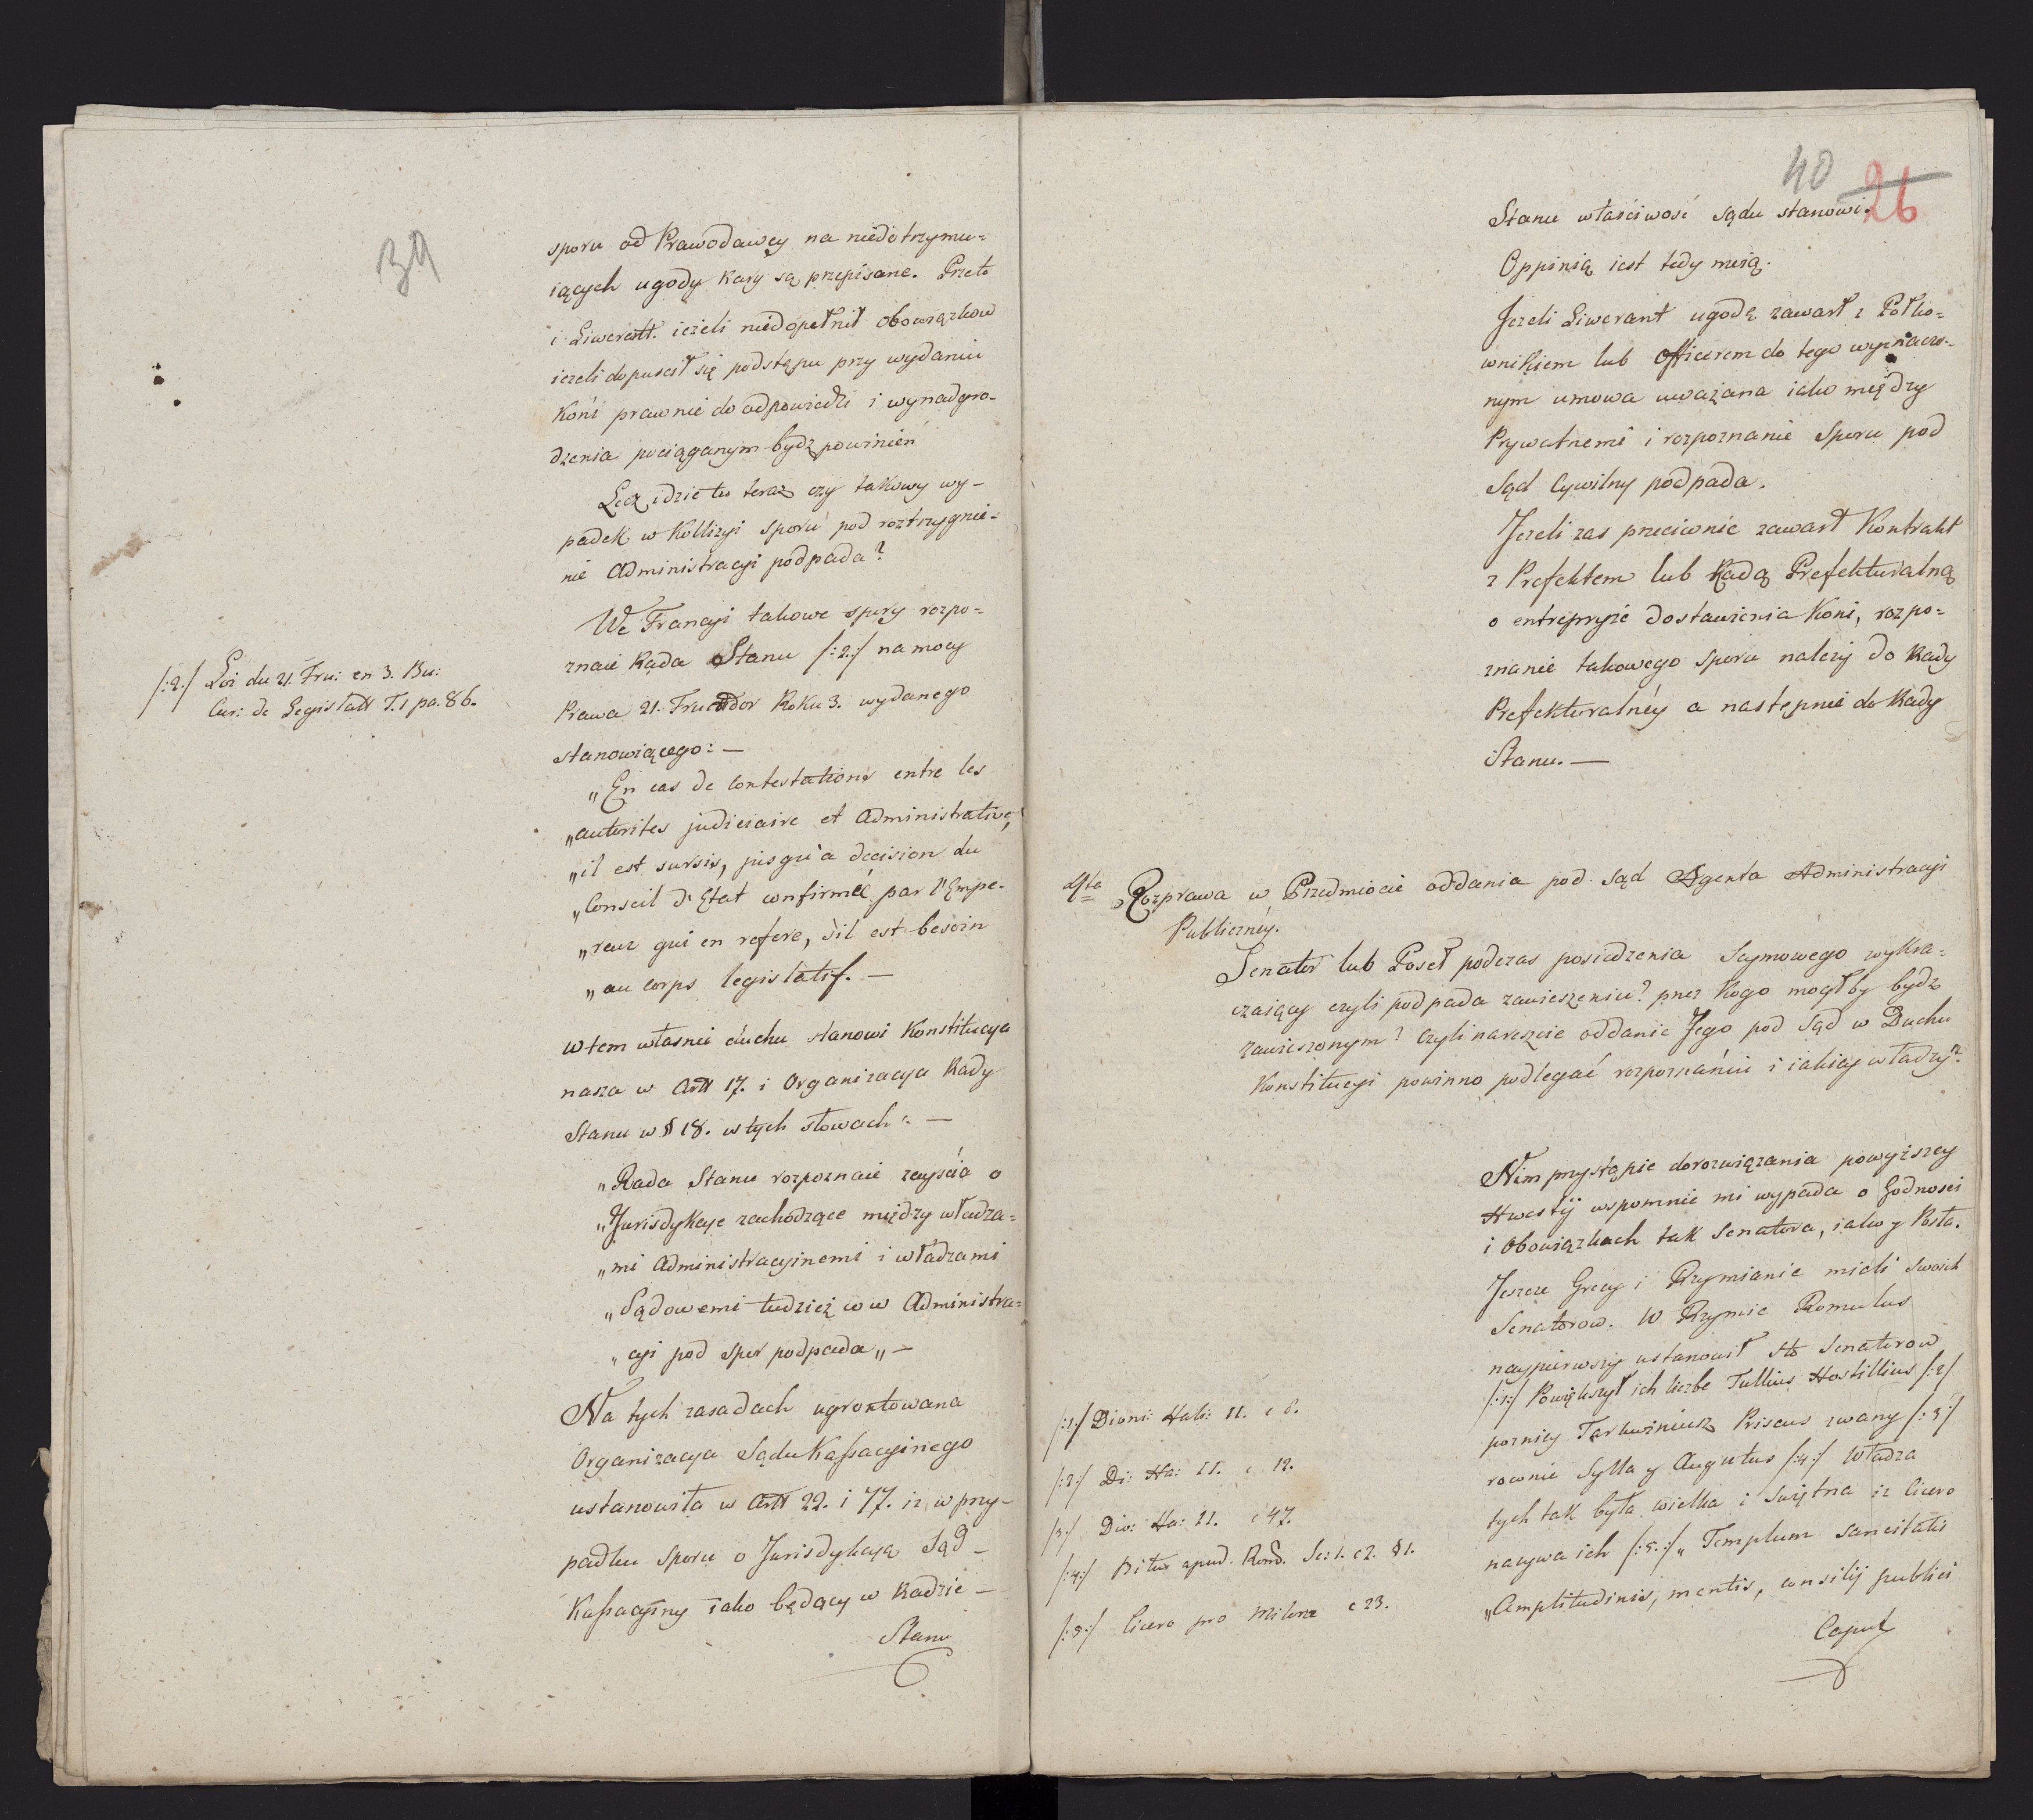 39
sporu od Prawodawcy na niedotrzymu=
iących ugody kary są przepisane. Przeto
i Liwerant. ieżeli niedopełnił obowiązkow
ieżeli dopuscił się podstępu przy wydaniu
Koni prawnie do odpowiedzi i wynadgro-
dzenia pociąganym bydz powinien
Lecz idzie tu teraz czy takowy wy-
padek w Kollizyi sporu pod roztrzygnie-
nie Administracyi podpada?
We Francyi takowe spory rozpo=
znaie Rada Stanu /:2:/ na mocy
Prawa 21. Fructidor Roku 3. wydanego
stanowiącego: —
/:2:/ Loi du 21. Fru: en 3. Bu:
Cur: de Legislatt T.1 pa. 86.
„En cas de contestations entre les
„autorites judiciaire et Administrative,
„il est sursis, jusqu'a decision du
„Conseil d'Etat confirmée par l'Empe-
„reur qui en refere, s'il est besoin
„au corps legislatif. —
W tem własnie duchu stanowi Konstitucya
nasza w Artt 17. i Organizacya Rady
Stanu w § 18. w tych słowach: —
„Rada Stanu rozpoznaie zayscia o
„Jurisdykcye zachodzące między władza=
„mi Administracyinemi i władzami
„Sądowemi tudzież co w Administra=
„cyi pod spor podpada„ —
Na tych zasadach ugrontowana
Organizacya Sądu Kassacyinego
ustanowiła w Artt 22. i 77. iz w przy-
padku sporu o Jurisdykcyą Sąd -
Kassacyiny iako będący w Radzie -
Stanu
40 26
Stanu właściwosć sądu stanowi.
Oppinią iest tedy moią.
Jeżeli Liwerant ugodę zawarł z Połko=
wnikiem lub officerem do tego wyznaczo-
nym umowa uważana iako między
Prywatnemi i rozpoznanie Sporu pod
Sąd Cywilny podpada.
Jeżeli zas przeciwnie zawarł Kontrakt
z Prefektem lub Radą Prefekturalną
o entrepryzie dostawienia Koni, rozpo=
znanie takowego sporu należy do Rady
Prefekturalnéy a następnie do Rady
Stanu. —
4ta Rozprawa w Przedmiocie oddania pod Sąd Agenta Administracyi
Publicznéy.
Senator lub Poseł podczas posiedzenia Seymowego wykra=
czaiący czyli podpada zawieszeniu? przez Kogo mogłby bydz
zawieszonym? czyli nareszcie oddanie Jego pod Sąd w Duchu
Konstitucyi powinno podlegać rozpoznaniu i iakiey władzy?
Nim przystąpie do rozwiązania powyższey
Kwestÿ wspomnie mi wypada o Godnosci
i Obowiązkach tak Senatora, iako y Posła.
Jeszcze Grecy i Rzymianie mieli swoich
Senatorow. W Rzymie Romulus
naypierwszy ustanowił sto Senatorow
/:1:/ Powiększył ich liczbe Tullius Hostillius /:2/
poznicy Tarkwiniusz Priscus zwany /:3:/
rownie Sylla y Augustus /:4:/ Władza
tych tak była wielka i Swiętna iz Cicero
nazywa ich /:5:/ „Templum sancitatis
„Amplitudinis, mentis, consilij publici
Caput
/:1:/ Dioni: Hali: II. c 8.
/:2:/ Di: Ha: II. c 12.
/3:/ Dio: Ha: II. c 47.
/:4:/ apud. Se: 1. c 2. § 1.
/:5:/ Cicero pro Milone c 23.